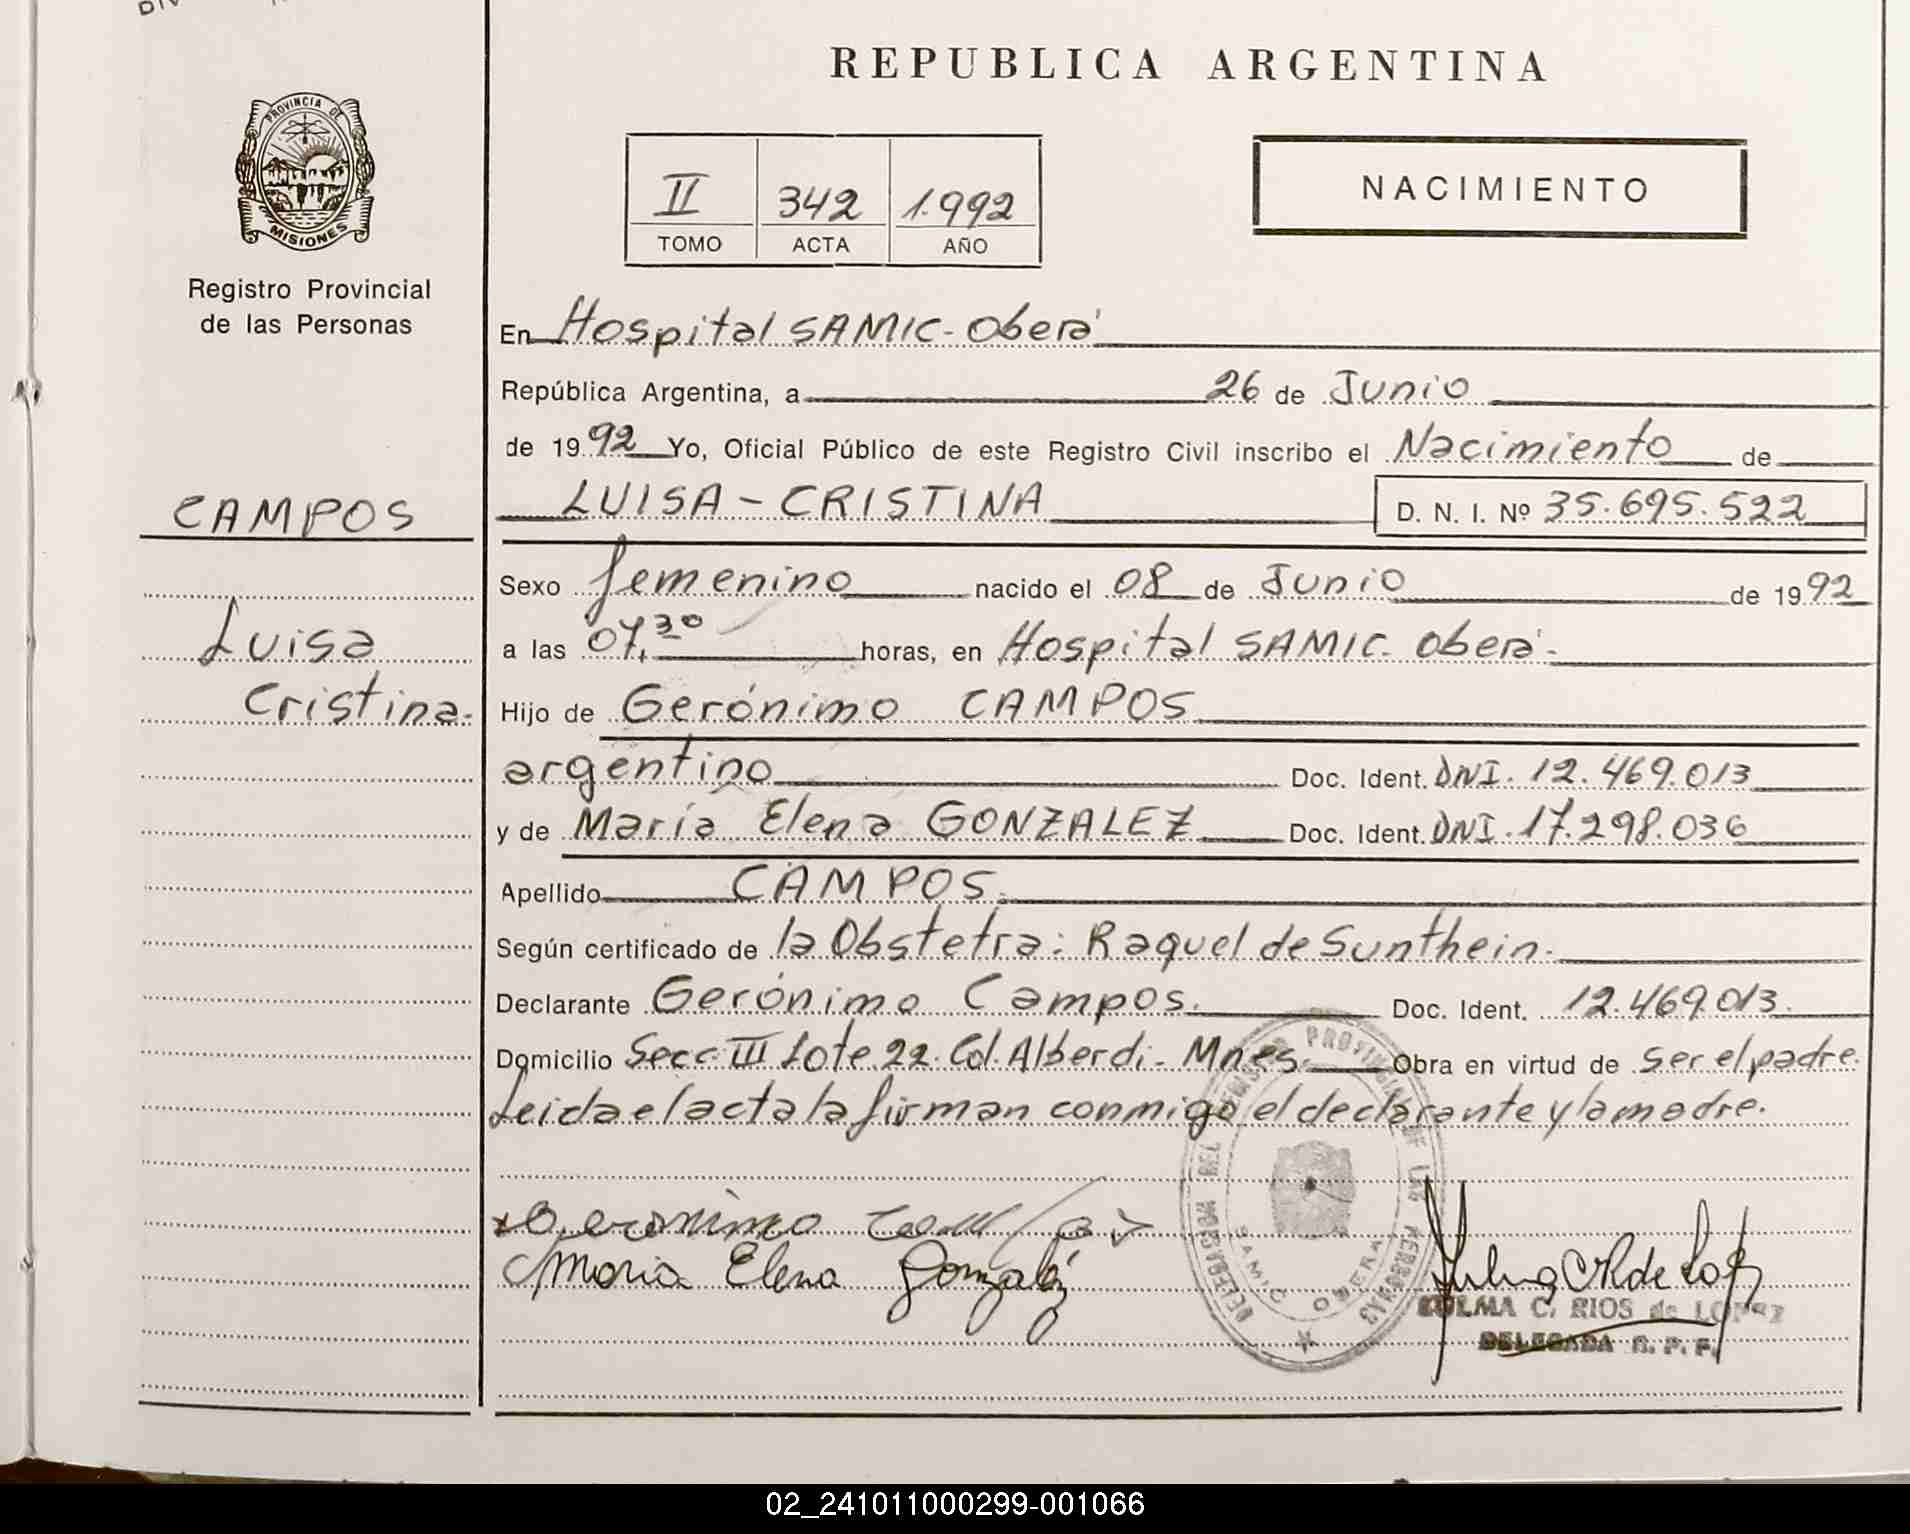 REPUBLICA ARGENTINA
PROVINCIA DE
MISIONES
Registro Provincial
de las Personas
II 342 1.992
TOMO ACTA AÑO
NACIMIENTO
En Hospital SAMIC - Oberá
República Argentina, a 26 de Junio
de 1992 Yo, Oficial Público de este Registro Civil inscribo el Nacimiento de
CAMPOS
LUISA - CRISTINA D. N. I. Nº 35.695.522
Sexo femenino nacido el 08 de Junio de 1992
Luisa
a las 07,30 horas, en Hospital SAMIC. Oberá.
Cristina.
Hijo de Gerónimo CAMPOS
argentino Doc. Ident. DNI. 12.469.013
y de María Elena GONZALEZ Doc. Ident. DNI. 17.298.036
Apellido CAMPOS.
Según certificado de la Obstetra: Raquel de Sunthein.
Declarante Gerónimo Campos. Doc. Ident. 12.469.013.
Domicilio Secc. III Lote 22. Col. Alberdi - Mnes. Obra en virtud de ser el padre.
Leida el acta la firman conmigo el declarante y la madre.
Geronimo
Maria Elena Gonzalez
DELEGACION DEL REGISTRO PROVINCIAL DE LAS PERSONAS
SAMIC OBERA
ZULMA C. RIOS de LOPEZ
DELEGADA R. P. P.
02_241011000299-001066